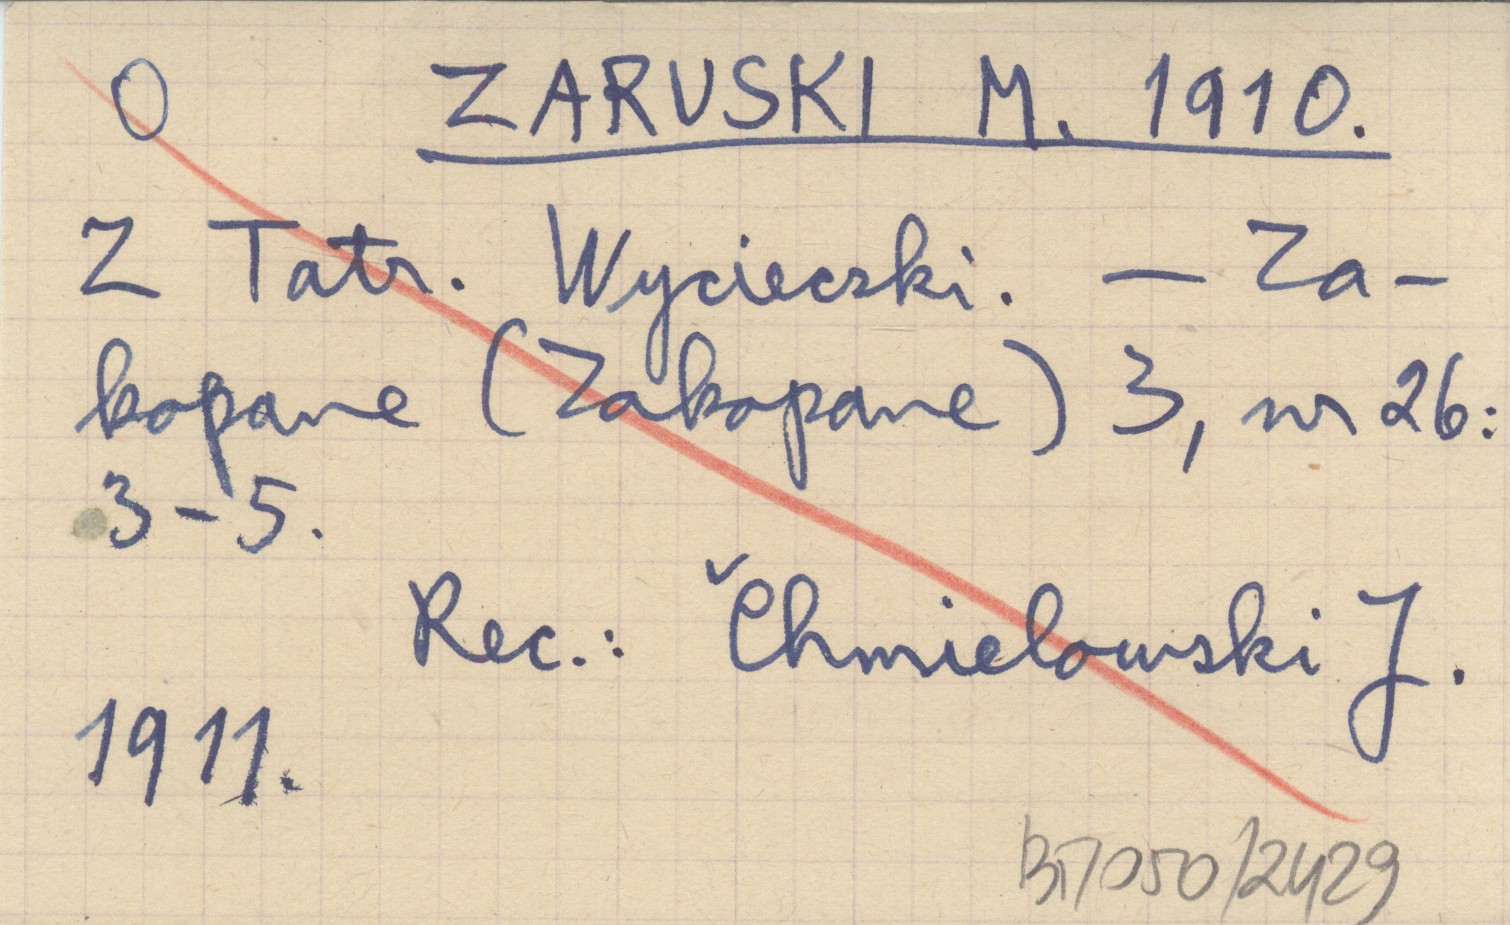 O ZARUSKI M. 1910.
Z Tatr. Wycieczki. — Za-
kopane (Zakopane) 3, nr 26:
3-5.
Rec.: ˇChmielowski J.
1911.
BT/050/2429